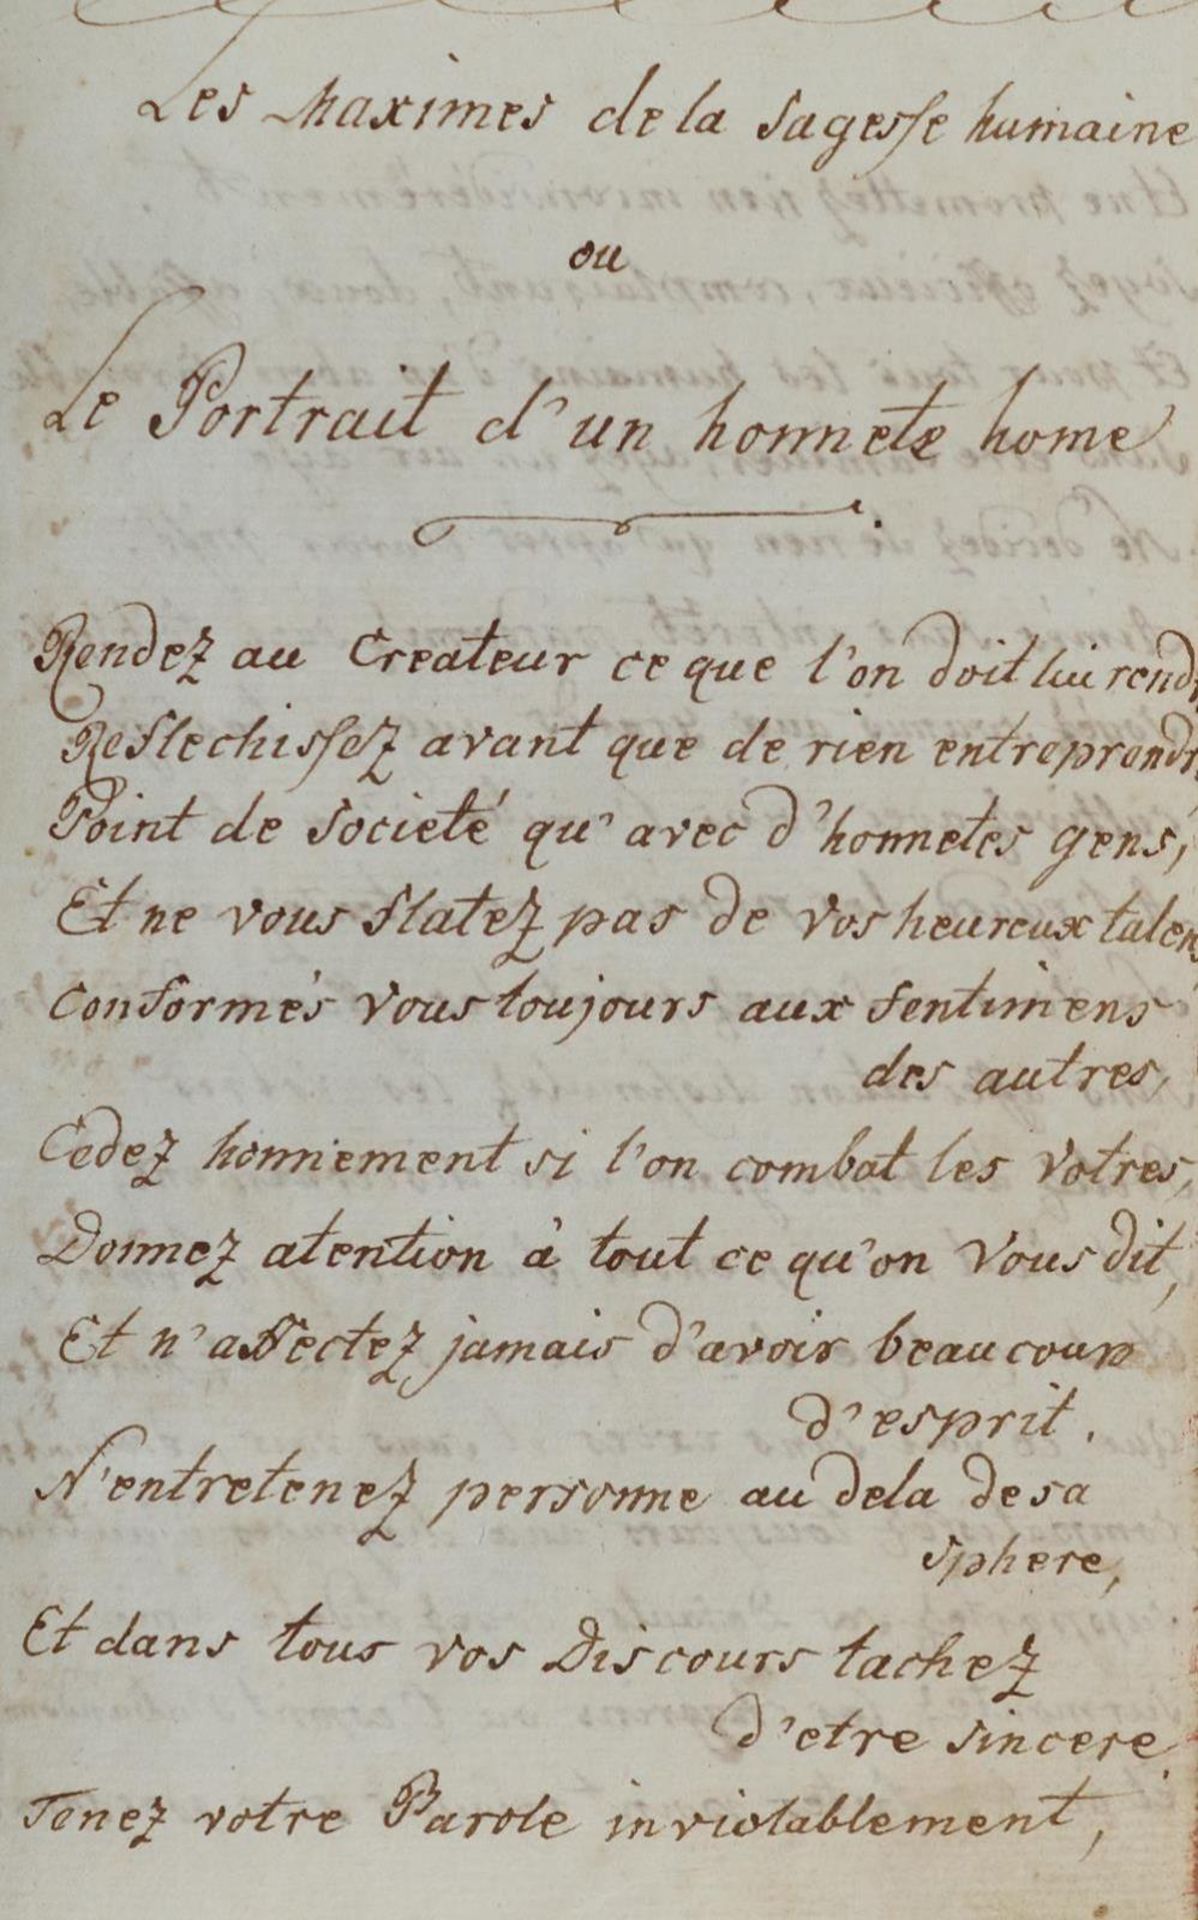 Les Maximes de la Sagesse humaine
ou
Le Portrait d'un honnete home
Rendez au Createur ce que l'on doit lui rendr
Reflechissez avant que de rien entreprendr
Point de Societé qu'avec d'honnetes gens,
Et ne vous flatez pas de vos heureux talens
Conformés vous toujours aux sentimens
des autres,
Cedez honnement si l'on combat les votres,
Donnez atention à tout ce qu'on vous dit,
Et n'affectez jamais d'avoir beaucoup
d'esprit.
N'entretenez personne au dela de sa
sphere,
Et dans tous vos Discours tachez
d'etre sincere.
Tenez votre Parole inviolablement,